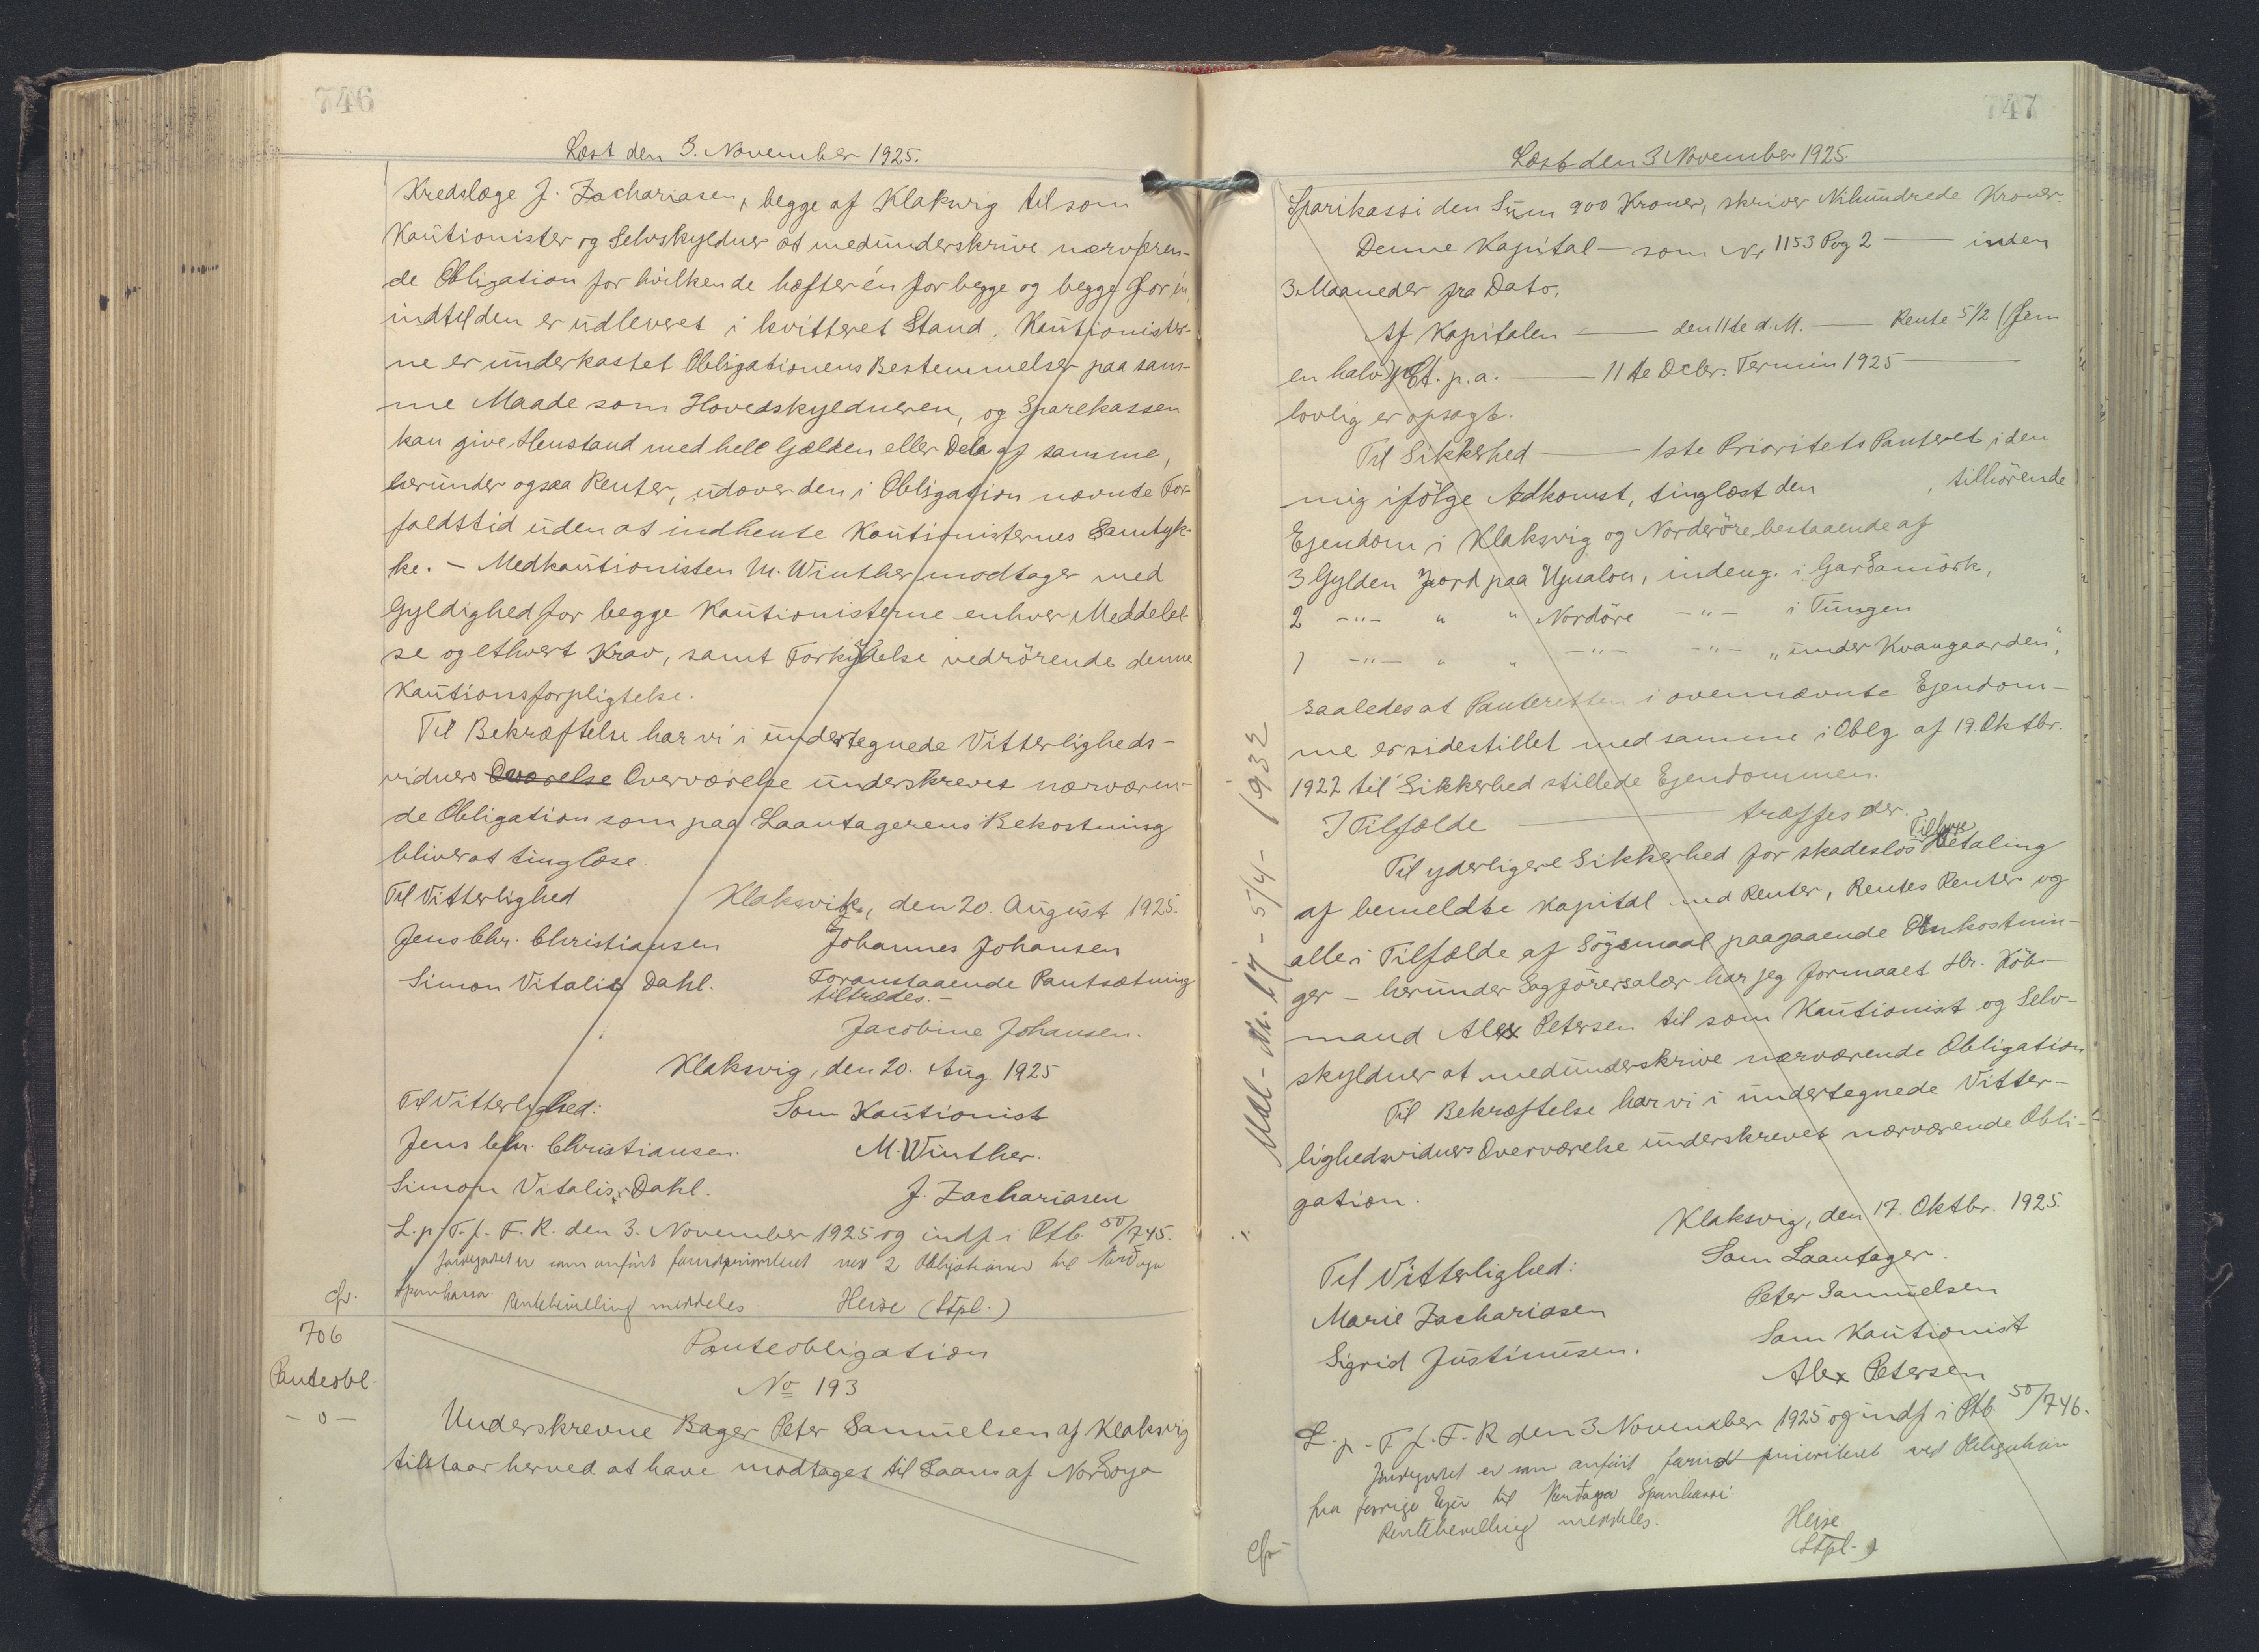 746
Læst den 3. November 1925.
Kredslæge J. Zachariasen, begge af Klaksvig til som
Kautionister og Selvskyldner at medunderskrive nærværen-
de Obligation for hvilken de hæfter én for begge og begge for én,
indtil den er udleveret i kvitteret Stand. Kautionister-
ne er underkastet Obligationens Bestemmelser paa sam-
me Maade som Hovedskyldneren, og Sparekassen
kan give Henstand med hele Gælden eller Dele af samme,
herunder ogsaa Renter, udover den i Obligation nævnte For-
faldstid uden at indhente Kautionisternes Samtyk-
ke. - Medkautionisten M. Winther modtager med
Gyldighed for begge Kautionisterne enhver Meddelel-
se og ethvert Krav, samt Forkyndelse vedrörende denne
Kautionsforpligtelse.
Til Bekræftelse har vi i undertegnede Vitterligheds-
vidners Overværelse underskrevet nærværen-
de Obligation som paa Laantagerens Bekostning
bliver at tinglæse.
Til Vitterlighed Klaksvik, den 20. August 1925.
Jens Chr. Christiansen Johannes Johansen
Simon Vitalis Dahl. Foranstaaende Pantsætning
tiltrædes. -
Jacobine Johansen.
Klaksvig, den 20. Aug. 1925
Til Vitterlighed: Som Kautionist
Jens Chr. Christiansen. M. Winther.
Simon Vitalis Dahl. J. Zachariasen
L. p. T. f. F. R. den 3. November 1925 og indf. i Ptb. 50/745.
Jordegodset er som anfört forud prioriteret ved 2 Obligationer til Nordoya
Sparikassa. Rentebevilling meddeles. Heise (Stpl.)
cfr.
706
Panteobl.
- 0 -
Panteobligation
No 193
Underskrevne Bager Peter Samuelsen af Klaksvig
tilstaar herved at have modtaget til Laans af Nordoya
747
Læst den 3 November 1925.
Sparikassi den Sum 900 Kroner, skriver Nihundrede Kroner.
Denne Kapital - som Nr 1153 Pag 2 - inden
3 Maaneder fra Dato.
Af Kapitalen - den 11te d.M. - Rente 5½ (fem
en halv) pCt. p.a. - 11te Dcbr. Termin 1925 -
lovlig er opsagt.
Til Sikkerhed - 1ste Prioritets Panteret i den
mig ifölge Adkomst, tinglæst den , tilhörende
Ejendom i Klaksvig og Norderöre bestaaende af
3 Gylden Jord paa Upsalon, indeng. i Gardamörk,
2 -"- " " Nordöre -"- i Tungen
1 -"- " " -"- -"- "under Kvangaarden",
saaledes at Panteretten i ovennævnte Ejendom-
me er sidestillet med samme i Oblg. af 19. Oktbr.
1922 til Sikkerhed stillede Ejendommen.
I Tilfælde - træffes der.
Til yderligere Sikkerhed for skadeslös Betaling
af bemeldte Kapital med Renter, Rentes Renter og
alle i Tilfælde af Sögsmaal paagaaende Omkostnin-
ger - herunder Sagförersalær har jeg formaaet Hr. Köb-
mand Alex Petersen til som Kautionist og Selv-
skyldner at medunderskrive nærværende Obligation
Til Bekræftelse har vi i undertegnede Vitter-
lighedsvidners Overværelse underskrevet nærværende Obli-
gation.
Klaksvig, den 17. Oktbr. 1925.
Til Vitterlighed: Som Laantager.
Marie Zachariasen Peter Samuelsen
Sigrid Justinusen. Som Kautionist
Alex Petersen
L. p. T. f. F. R den 3 November 1925 og indf i Ptb. 50/746.
Jordegodset er som anfört forud prioriteret ved Obligation
fra forrige Ejer til Nordoya Sparikassi.
Rentebevilling meddeles. Heise
(Stpl.)
cfr.
Udl - Nr. 17 - 5/4 - 1932